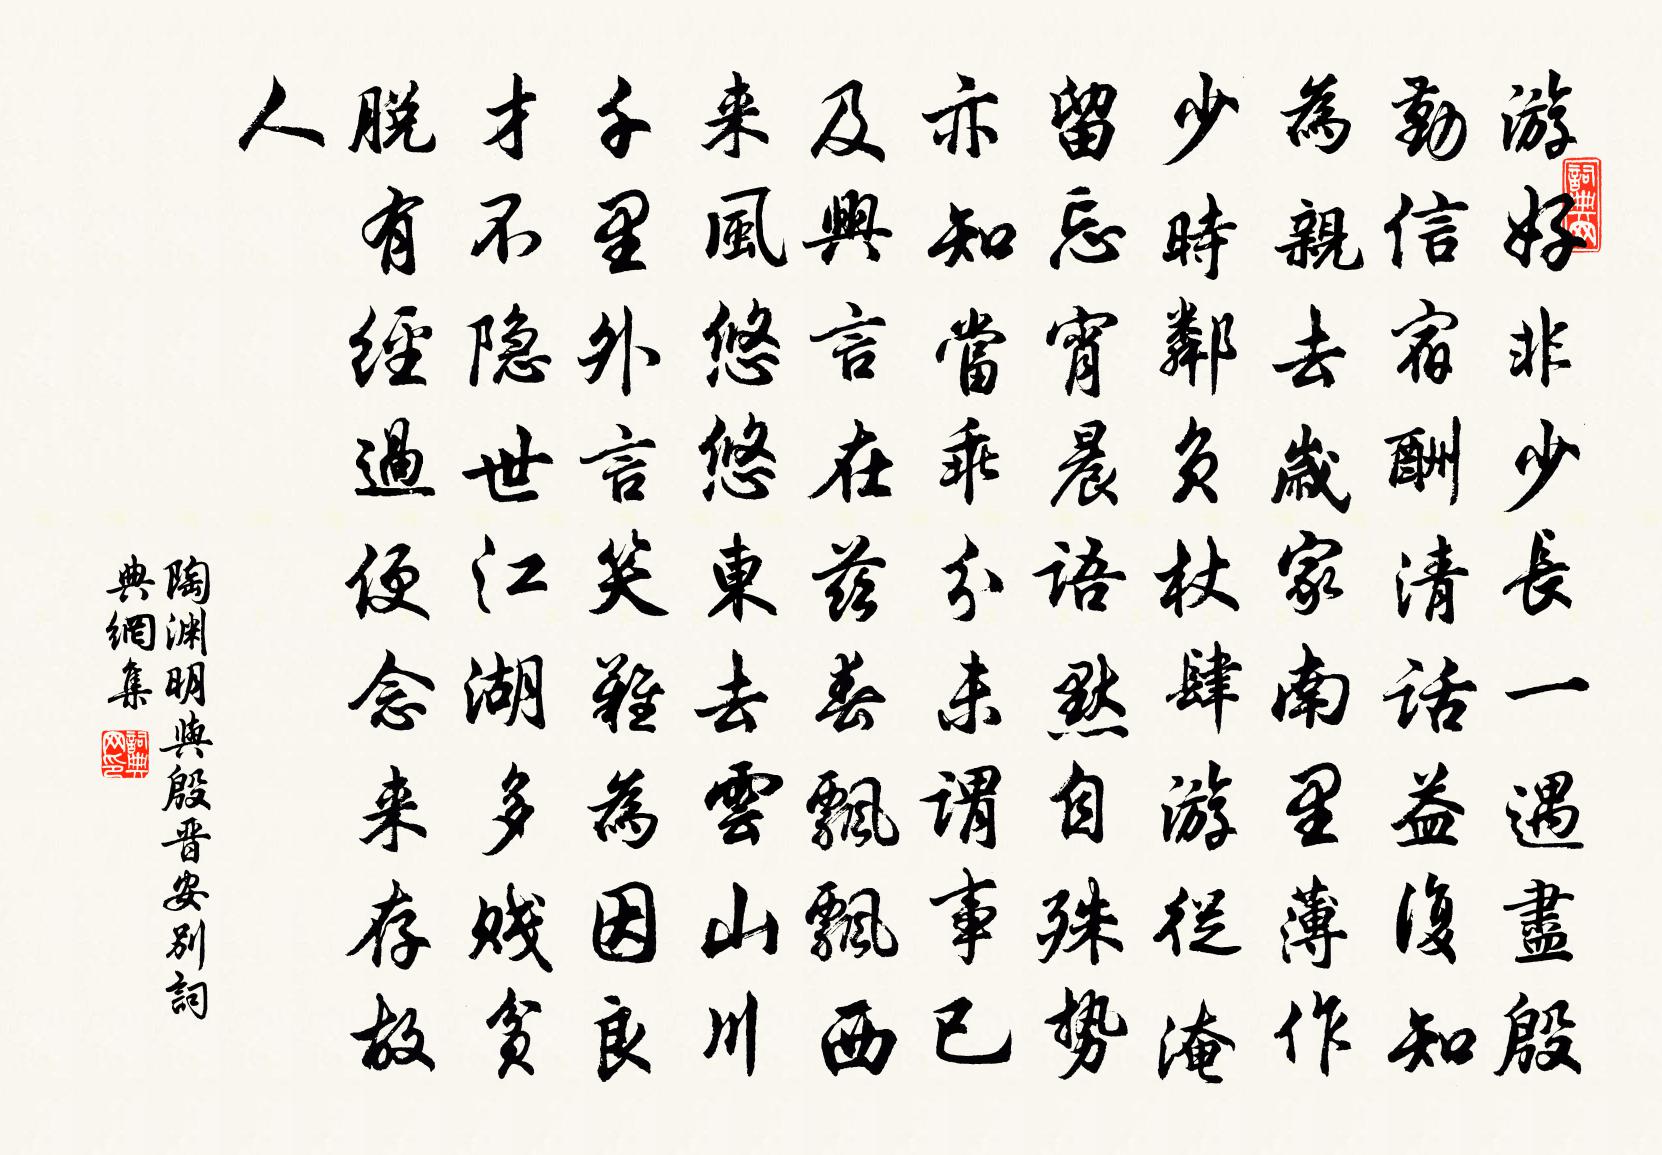 游好非少長一遇盡殷
勤信宿酬清話益復知
為親去歲家南里薄作
少時鄰負杖肆游從淹
留忘宵晨語默自殊勢
亦知當乖分未謂事已
及興言在茲春飄飄西
来風悠悠東去雲山川
千里外言笑難為因良
才不隐世江湖多賤貧
脱有經過便念来存故
人
陶渊明與殷晋安别詞
典網集
詞典网
詞典网印